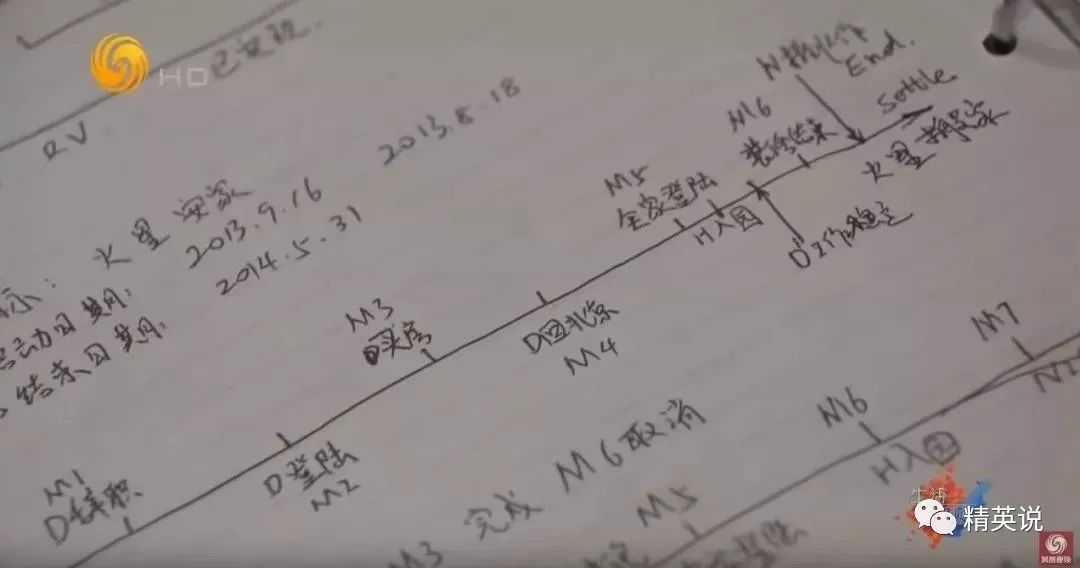 HD
已实现
RV
2013.8.18
标：火星 安家
启动日期：2013.9.16
结束日期：2014.5.31
M1
D辞职
D登陆
M2
M3
买房
D回北京
M4
M5
全家登陆
H入园
M6
装修结束
D工作稳定
End.
Settle
火星
M3 完成 M6取消
M5
M6
H入园
M7
生活
精英说
凤凰视频